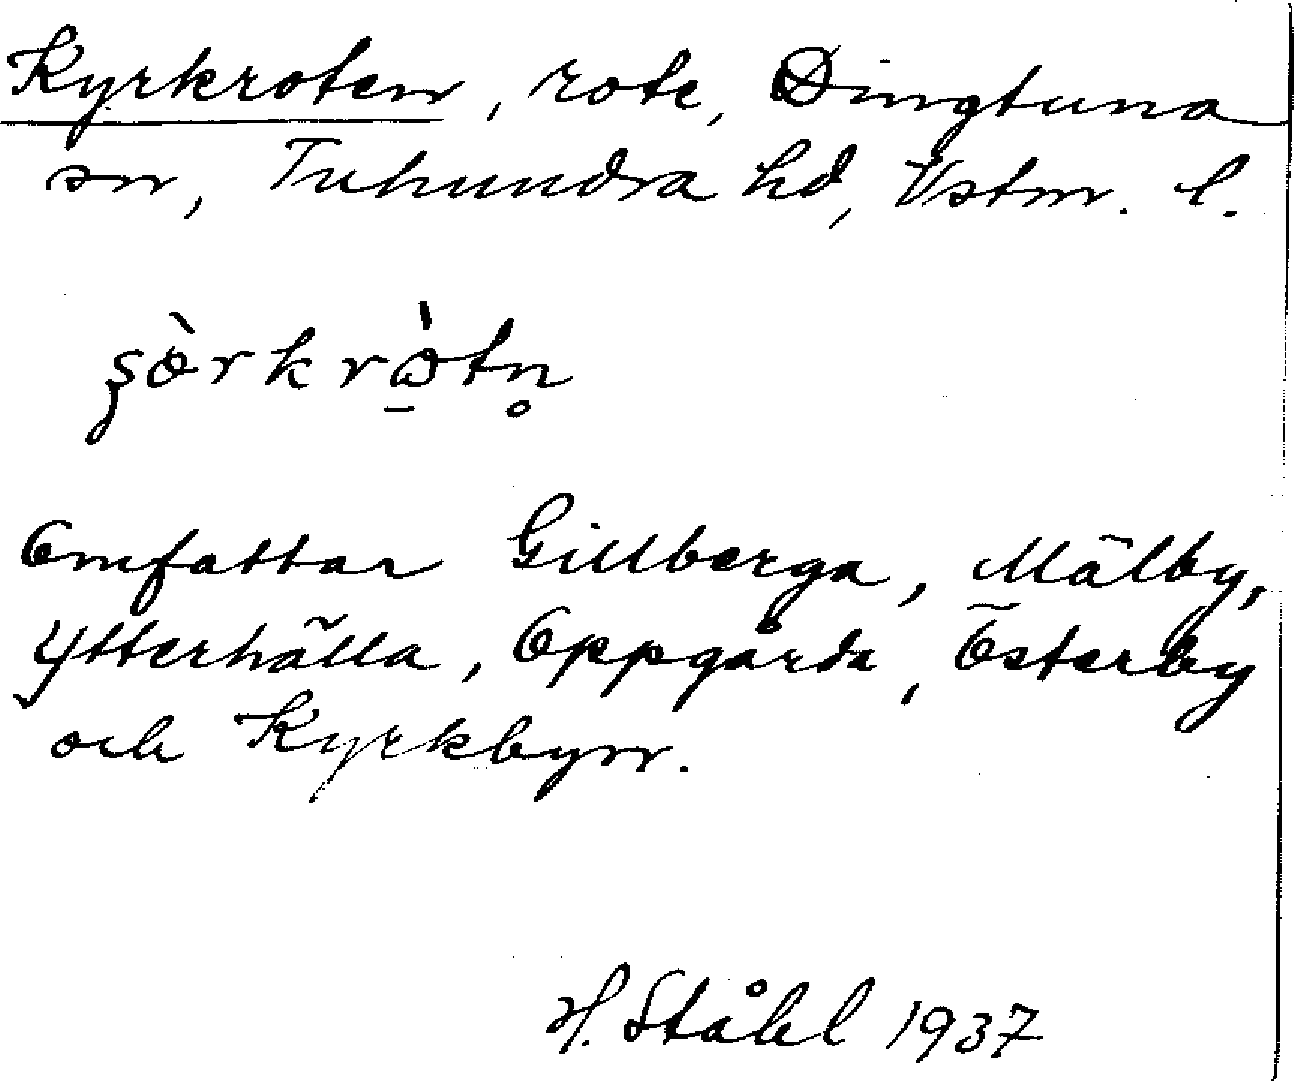 Kyrkroten, rote, Dingtuna
sn, Tuhundra hd, Vstm. l.
Omfattar Gillberga, Mälby,
Ytterhälla, Oppgärda, Österby
och Kyrkbyn.
H. Ståhl 1937